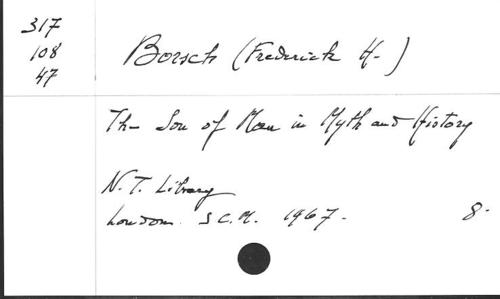 317
108
47
Borsch (Frederick H.)
The Son of Man in Myth and History
N.T. Library
London. S.C.M. 1967.
8.